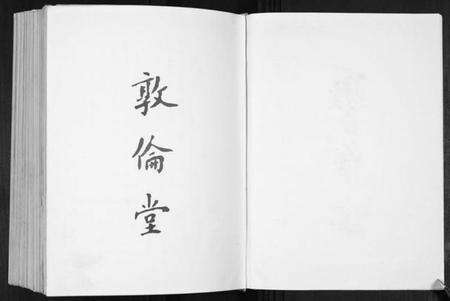 敦倫堂